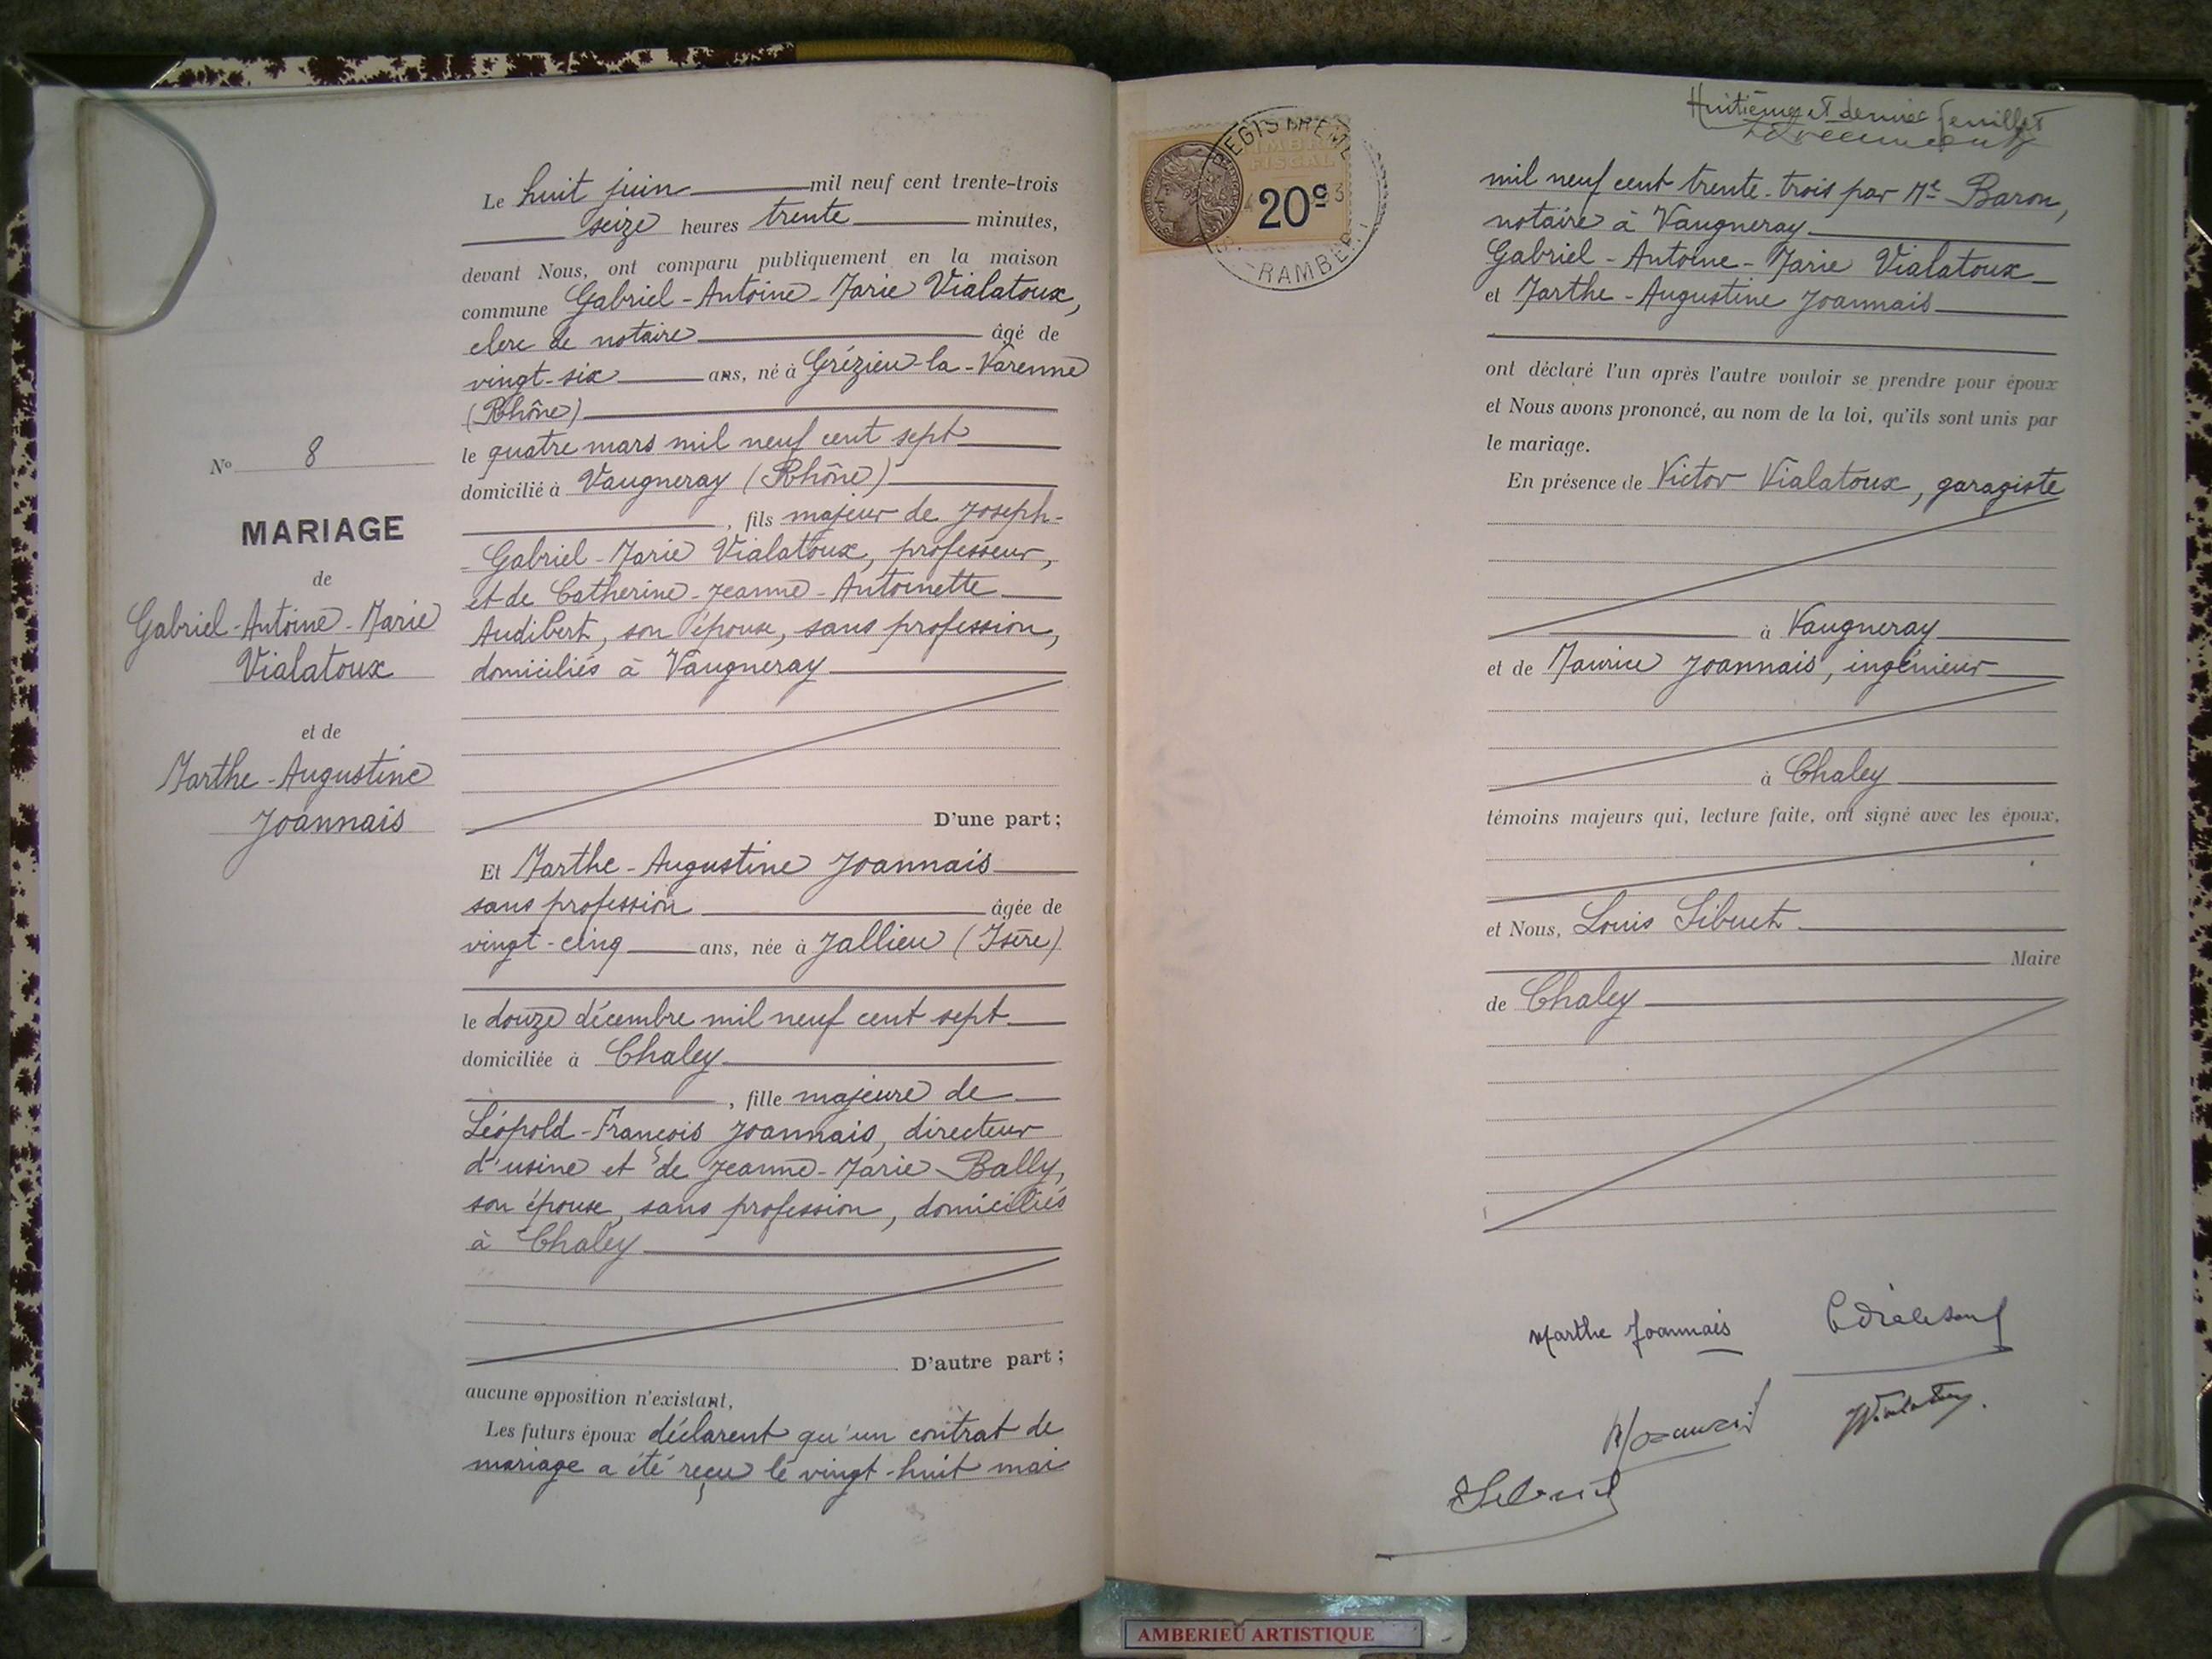 N° 8
MARIAGE
de
Gabriel-Antoine-Marie
Vialatoux
et de
Marthe-Augustine
Joannais
Le huit juin mil neuf cent trente-trois
seize heures trente minutes,
devant Nous, ont comparu publiquement en la maison
commune Gabriel-Antoine-Marie Vialatoux,
clerc de notaire âgé de
vingt-six ans, né à Grézieu-la-Varenne
(Rhône)
le quatre mars mil neuf cent sept
domicilié à Vaugneray (Rhône)
, fils majeur de Joseph-
-Gabriel-Marie Vialatoux, professeur,
et de Catherine-Jeanne-Antoinette
Audibert, son épouse, sans profession,
domiciliés à Vaugneray
D'une part;
Et Marthe-Augustine Joannais
sans profession âgée de
vingt-cinq ans, née à Jallieu (Isère)
le douze décembre mil neuf cent sept
domiciliée à Chaley
, fille majeure de
Léopold-François Joannais, directeur
d'usine et de Jeanne-Marie Bally,
son épouse, sans profession, domiciliés
à Chaley
D'autre part;
aucune opposition n'existant,
Les futurs époux déclarent qu'un contrat de
mariage a été reçu le vingt-huit mai
TIMBRE
FISCAL
20c
RAMBERT
Huitième et dernier feuillet
mil neuf cent trente-trois par Me Baron,
notaire à Vaugneray
Gabriel-Antoine-Marie Vialatoux
et Marthe-Augustine Joannais
ont déclaré l'un après l'autre vouloir se prendre pour époux
et Nous avons prononcé, au nom de la loi, qu'ils sont unis par
le mariage.
En présence de Victor Vialatoux, garagiste
à Vaugneray
et de Maurice Joannais, ingénieur
à Chaley
témoins majeurs qui, lecture faite, ont signé avec les époux,
et Nous, Louis Sibuet
Maire
de Chaley
Marthe Joannais
AMBERIEU ARTISTIQUE